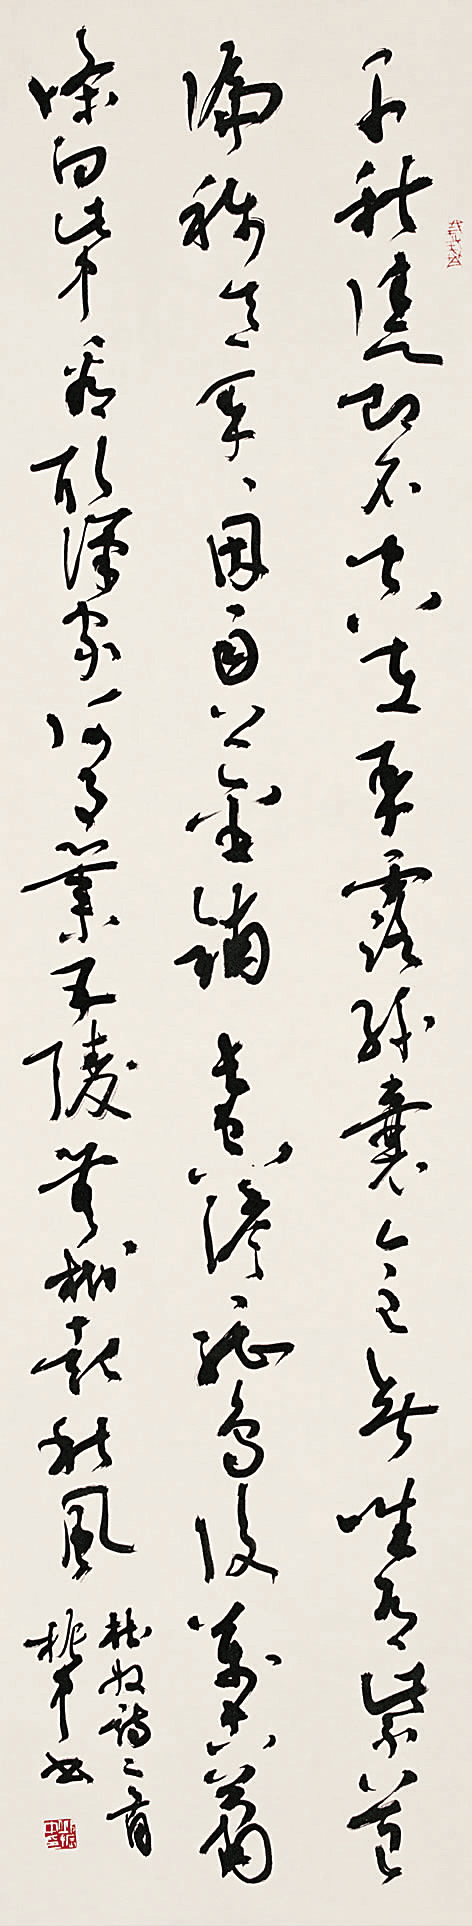 千秋佳節名空在承露絲囊世已無唯有紫苔
偏稱意年年因雨上金鋪長空澹澹孤鳥沒萬古銷
沉向此中看取漢家何事業五陵無樹起秋風
杜牧詩二首
書